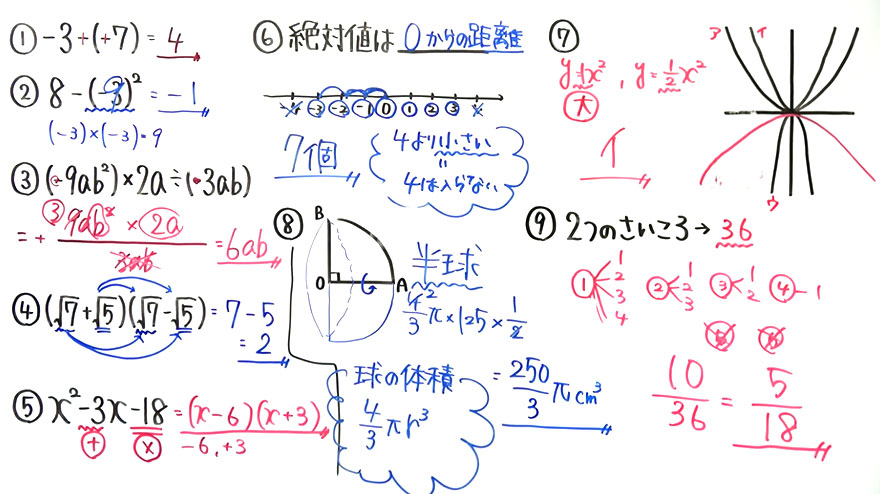 ① -3+(+7) = 4
② 8-(-3)² = -1
(-3)×(-3)=9
③ (-9ab²)×2a÷(-3ab)
= + 9ab² × 2a / 3ab = 6ab
3
④ (√7+√5)(√7-√5) = 7-5
= 2
⑤ x²-3x-18 = (x-6)(x+3)
+ × -6, +3
⑥ 絶対値は 0からの距離
-4 -3 -2 -1 0 1 2 3 4
7個
4より小さい
〃
4は入らない
⑦
y=1x², y=½x²
大
イ
ア イ
ウ
⑧
B
O A
半球
4/3 π×125×1/2
2
= 250/3 π cm³
球の体積
4/3 πr³
⑨ 2つのさいころ→36
① 1 2 3 4
② 1 2 3
③ 1 2
④ 1
⑤ ⑥
10/36 = 5/18